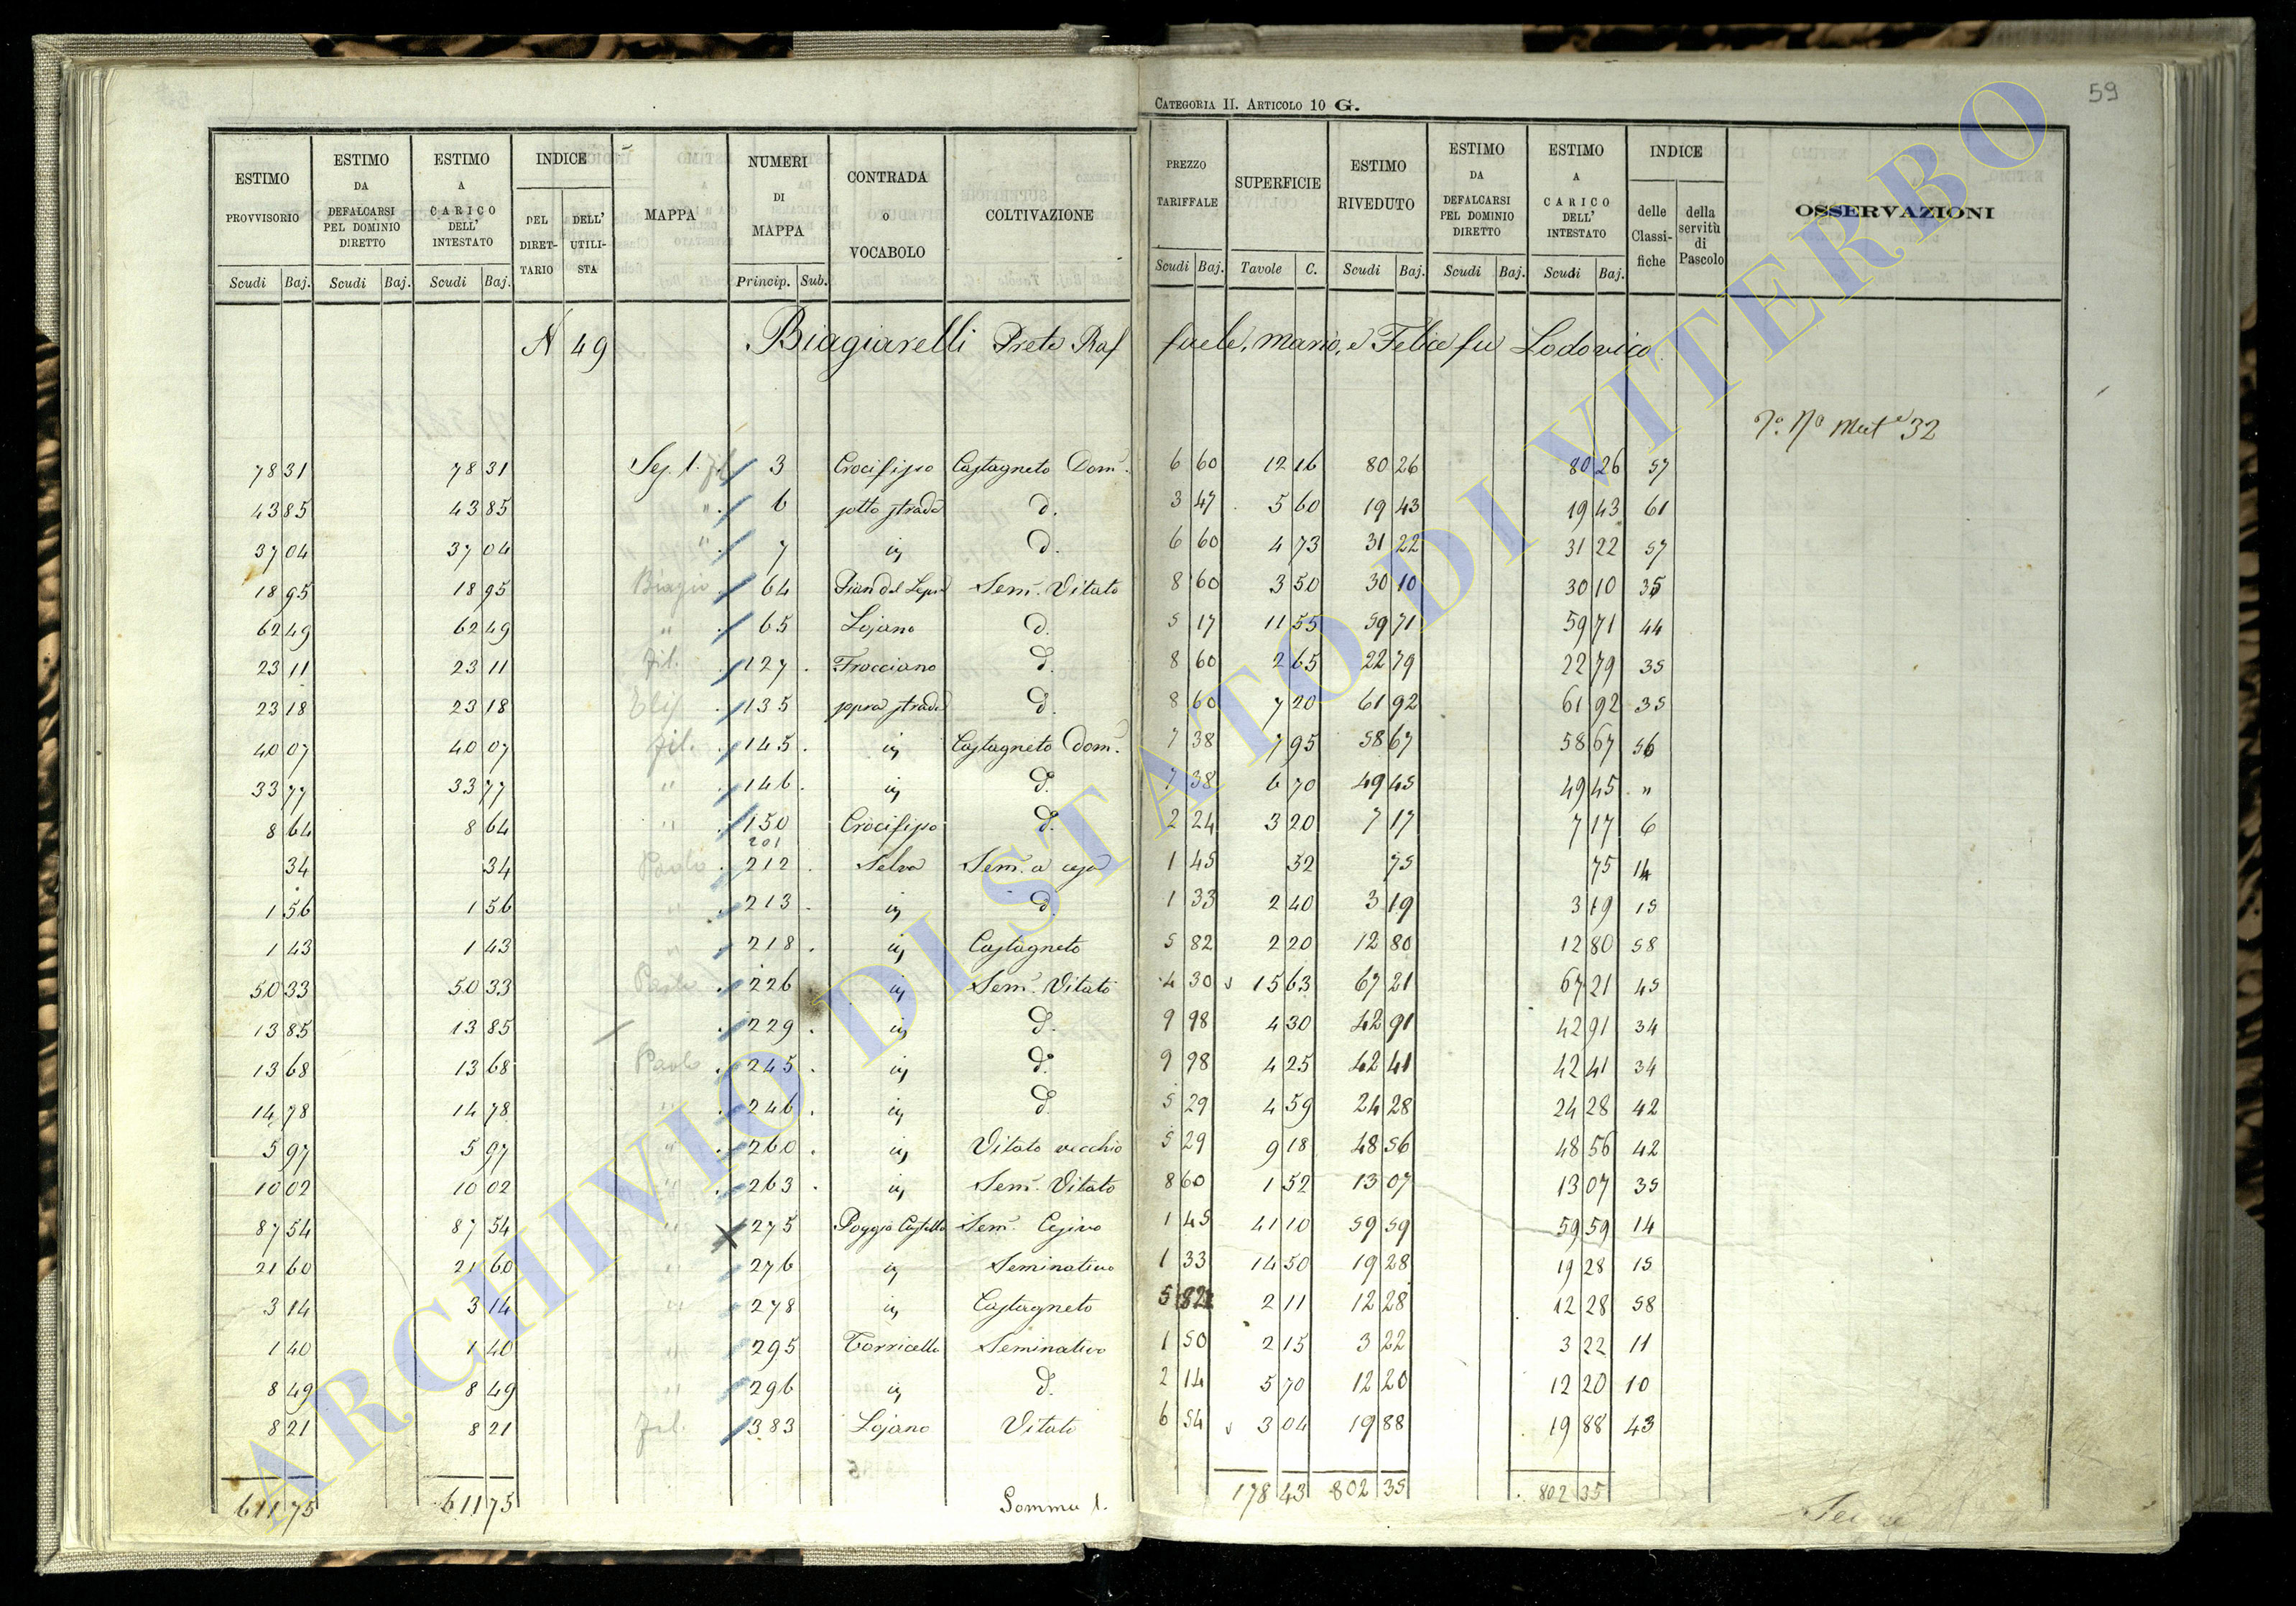 59
CATEGORIA II. ARTICOLO 10 G.
ESTIMO PROVVISORIO | ESTIMO DA DEFALCARSI PEL DOMINIO DIRETTO | ESTIMO A CARICO DELL' INTESTATO | INDICE DEL DIRET-TARIO | DELL' UTILI-STA | MAPPA | NUMERI DI MAPPA | CONTRADA o VOCABOLO | COLTIVAZIONE | PREZZO TARIFFALE | SUPERFICIE | ESTIMO RIVEDUTO | ESTIMO DA DEFALCARSI PEL DOMINIO DIRETTO | ESTIMO A CARICO DELL' INTESTATO | INDICE delle Classi-fiche | della servitù di Pascolo | OSSERVAZIONI
Scudi | Baj. | Scudi | Baj. | Scudi | Baj. | Princip. | Sub. | Scudi | Baj. | Tavole | C. | Scudi | Baj. | Scudi | Baj. | Scudi | Baj.
N 49 Biagiarelli Prete Raf faele, Mario, e Felice fu Lodovico
7º. Nº Mut e 32
78 31 | 78 31 | Sez. 1. Fil | 3 | Crocifisso | Castagneto Dom. | 6 60 | 12 16 | 80 26 | 80 26 | 57
43 85 | 43 85 | " | 6 | sotto strada | d. | 3 47 | 5 60 | 19 43 | 19 43 | 61
37 04 | 37 04 | " | 7 | iṡ | d. | 6 60 | 4 73 | 31 22 | 31 22 | 57
18 95 | 18 95 | Biagio | 64 | Pian del Lepre | Sem. Vitato | 8 60 | 3 50 | 30 10 | 30 10 | 35
62 49 | 62 49 | " | 65 | Lojano | d. | 5 17 | 11 55 | 59 71 | 59 71 | 44
23 11 | 23 11 | Fil. | 127 | Frocciano | d. | 8 60 | 2 65 | 22 79 | 22 79 | 35
23 18 | 23 18 | Elis | 135 | sopra strada | d. | 8 60 | 7 20 | 61 92 | 61 92 | 35
40 07 | 40 07 | Fil. | 145 | iṡ | Castagneto Dom. | 7 38 | 7 95 | 58 67 | 58 67 | 56
33 77 | 33 77 | " | 146 | iṡ | d. | 7 38 | 6 70 | 49 45 | 49 45 | "
8 64 | 8 64 | " | 150 | Crocifisso | d. | 2 24 | 3 20 | 7 17 | 7 17 | 6
201
34 | 34 | Paolo | 212 | Selva | Sem. a ceja | 1 45 | 52 | 75 | 75 | 14
1 56 | 1 56 | " | 213 | iṡ | d. | 1 33 | 2 40 | 3 19 | 3 19 | 15
1 43 | 1 43 | " | 218 | iṡ | Castagneto | 5 82 | 2 20 | 12 80 | 12 80 | 58
50 33 | 50 33 | Paolo | 226 | iṡ | Sem. Vitato | 4 30 | 15 63 | 67 21 | 67 21 | 45
13 85 | 13 85 | 229 | iṡ | d. | 9 98 | 4 30 | 42 91 | 42 91 | 34
13 68 | 13 68 | Paolo | 245 | iṡ | d. | 9 98 | 4 25 | 42 41 | 42 41 | 34
14 78 | 14 78 | " | 246 | iṡ | d. | 5 29 | 4 59 | 24 28 | 24 28 | 42
5 97 | 5 97 | " | 260 | iṡ | Vitato vecchio | 5 29 | 9 18 | 48 56 | 48 56 | 42
10 02 | 10 02 | " | 263 | iṡ | Sem. Vitato | 8 60 | 1 52 | 13 07 | 13 07 | 35
87 54 | 87 54 | " | 275 | Poggio Castello | Sem. Cejivo | 1 45 | 41 10 | 59 59 | 59 59 | 14
21 60 | 21 60 | " | 276 | iṡ | Seminativo | 1 33 | 14 50 | 19 28 | 19 28 | 15
3 14 | 3 14 | " | 278 | iṡ | Castagneto | 5 82 | 2 11 | 12 28 | 12 28 | 58
1 40 | 1 40 | " | 295 | Torricella | Seminativo | 1 50 | 2 15 | 3 22 | 3 22 | 11
8 49 | 8 49 | " | 296 | iṡ | d. | 2 14 | 5 70 | 12 20 | 12 20 | 10
8 21 | 8 21 | Fil. | 383 | Lojano | Vitato | 6 54 | 3 04 | 19 88 | 19 88 | 43
611 75 | 611 75 | Somma l. | 178 43 | 802 35 | 802 35
Segue
ARCHIVIO DI STATO DI VITERBO